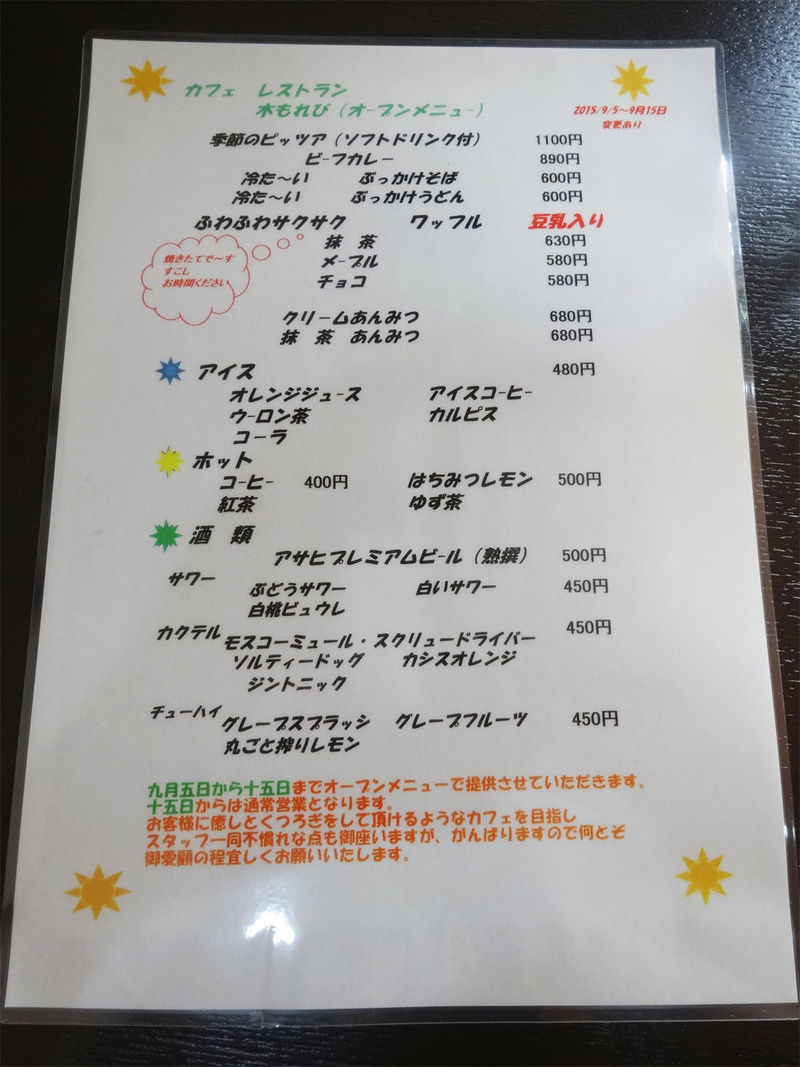 カフェ　レストラン
木もれび（オープンメニュー）
2015/9/5～9月15日
変更あり
季節のピッツア（ソフトドリンク付）　1100円
ビーフカレー　890円
冷た～い　ぶっかけそば　600円
冷た～い　ぶっかけうどん　600円
ふわふわサクサク　ワッフル　豆乳入り
抹　茶　630円
メープル　580円
チョコ　580円
焼きたてで～す
すこし
お時間ください
クリームあんみつ　680円
抹　茶　あんみつ　680円
アイス　480円
オレンジジュース　アイスコーヒー
ウーロン茶　カルピス
コーラ
ホット
コーヒー　400円　はちみつレモン　500円
紅茶　ゆず茶
酒　類
アサヒプレミアムビール（熟撰）　500円
サワー
ぶどうサワー　白いサワー　450円
白桃ピュウレ
カクテル　450円
モスコーミュール・スクリュードライバー
ソルティードッグ　カシスオレンジ
ジントニック
チューハイ
グレープスプラッシ　グレープフルーツ　450円
丸ごと搾りレモン
九月五日から十五日までオープンメニューで提供させていただきます。
十五日からは通常営業となります。
お客様に癒しとくつろぎをして頂けるようなカフェを目指し
スタッフ一同不慣れな点も御座いますが、がんばりますので何とぞ
御愛顧の程宜しくお願いいたします。